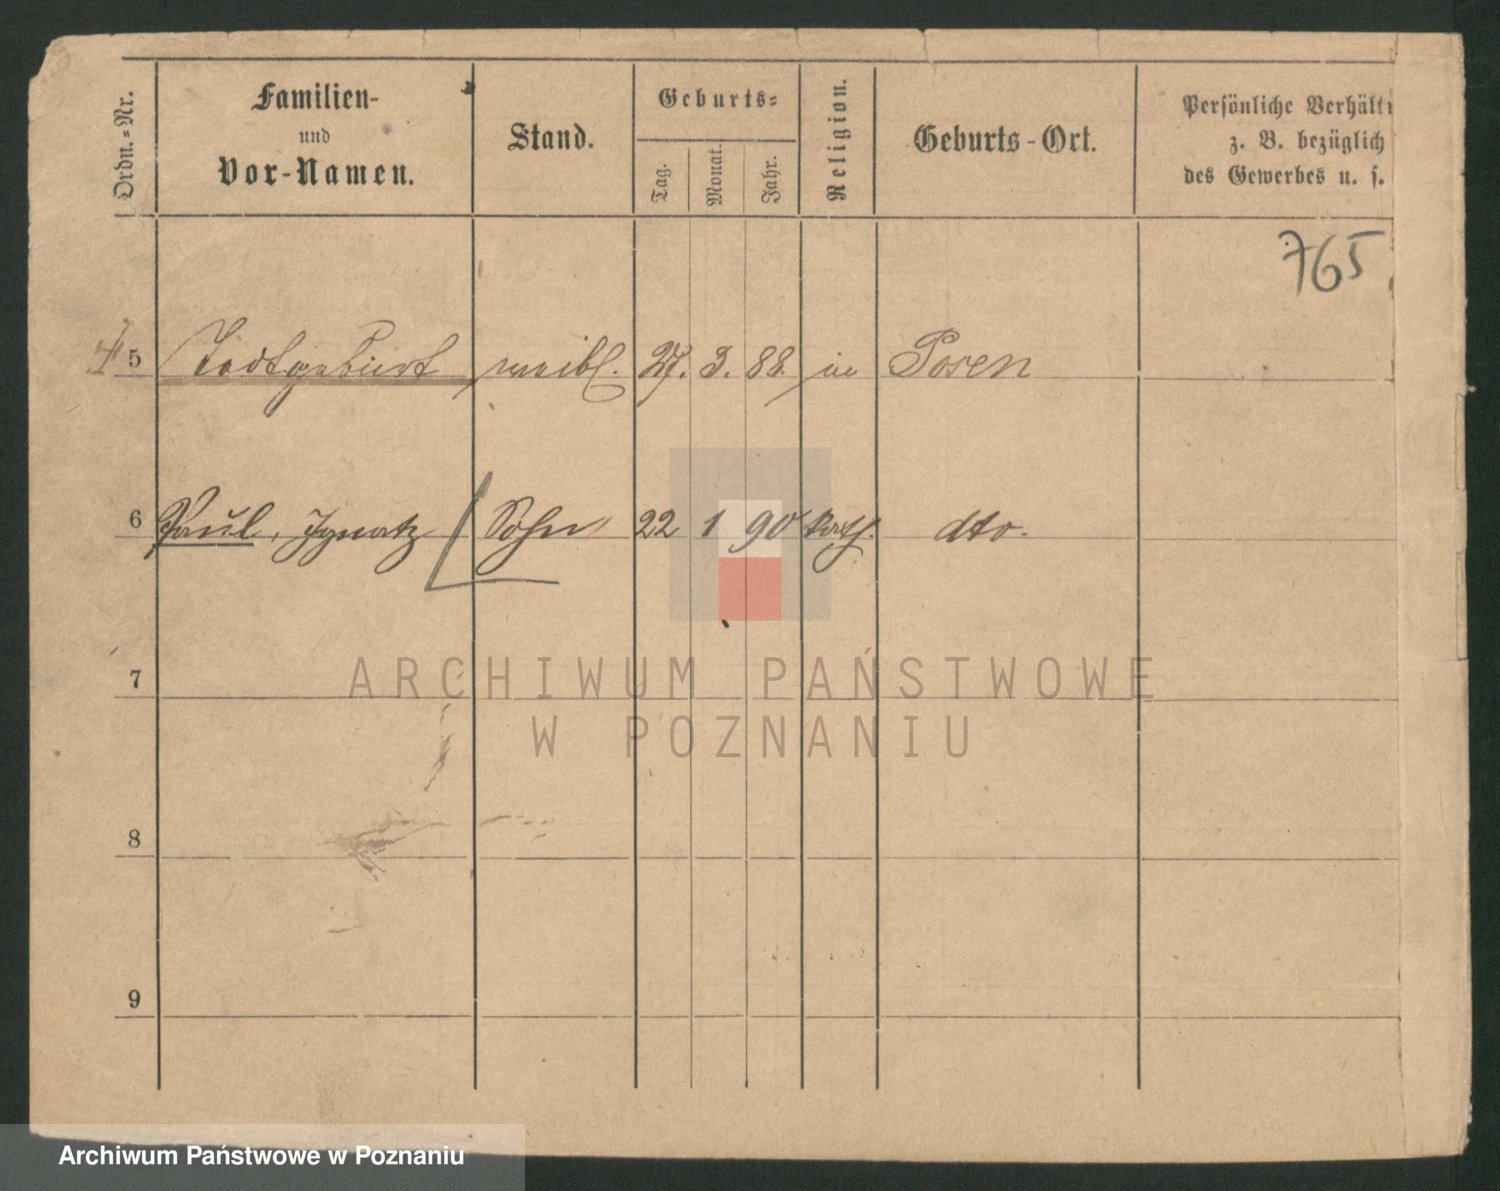 Ordn.-Nr.
Familien-
und
Vor-Namen.
Stand.
Geburts-
Tag.
Monat.
Jahr.
Religion.
Geburts-Ort.
Persönliche Verhält
z. B. bezüglich
des Gewerbes u. s.
765
5 Todtgeburt weibl. 27. 3. 88. in Posen
6 Paul, Ignatz Sohn 22 1 90 kath. dto.
7
ARCHIWUM PAŃSTWOWE
W POZNANIU
8
9
Archiwum Państwowe w Poznaniu